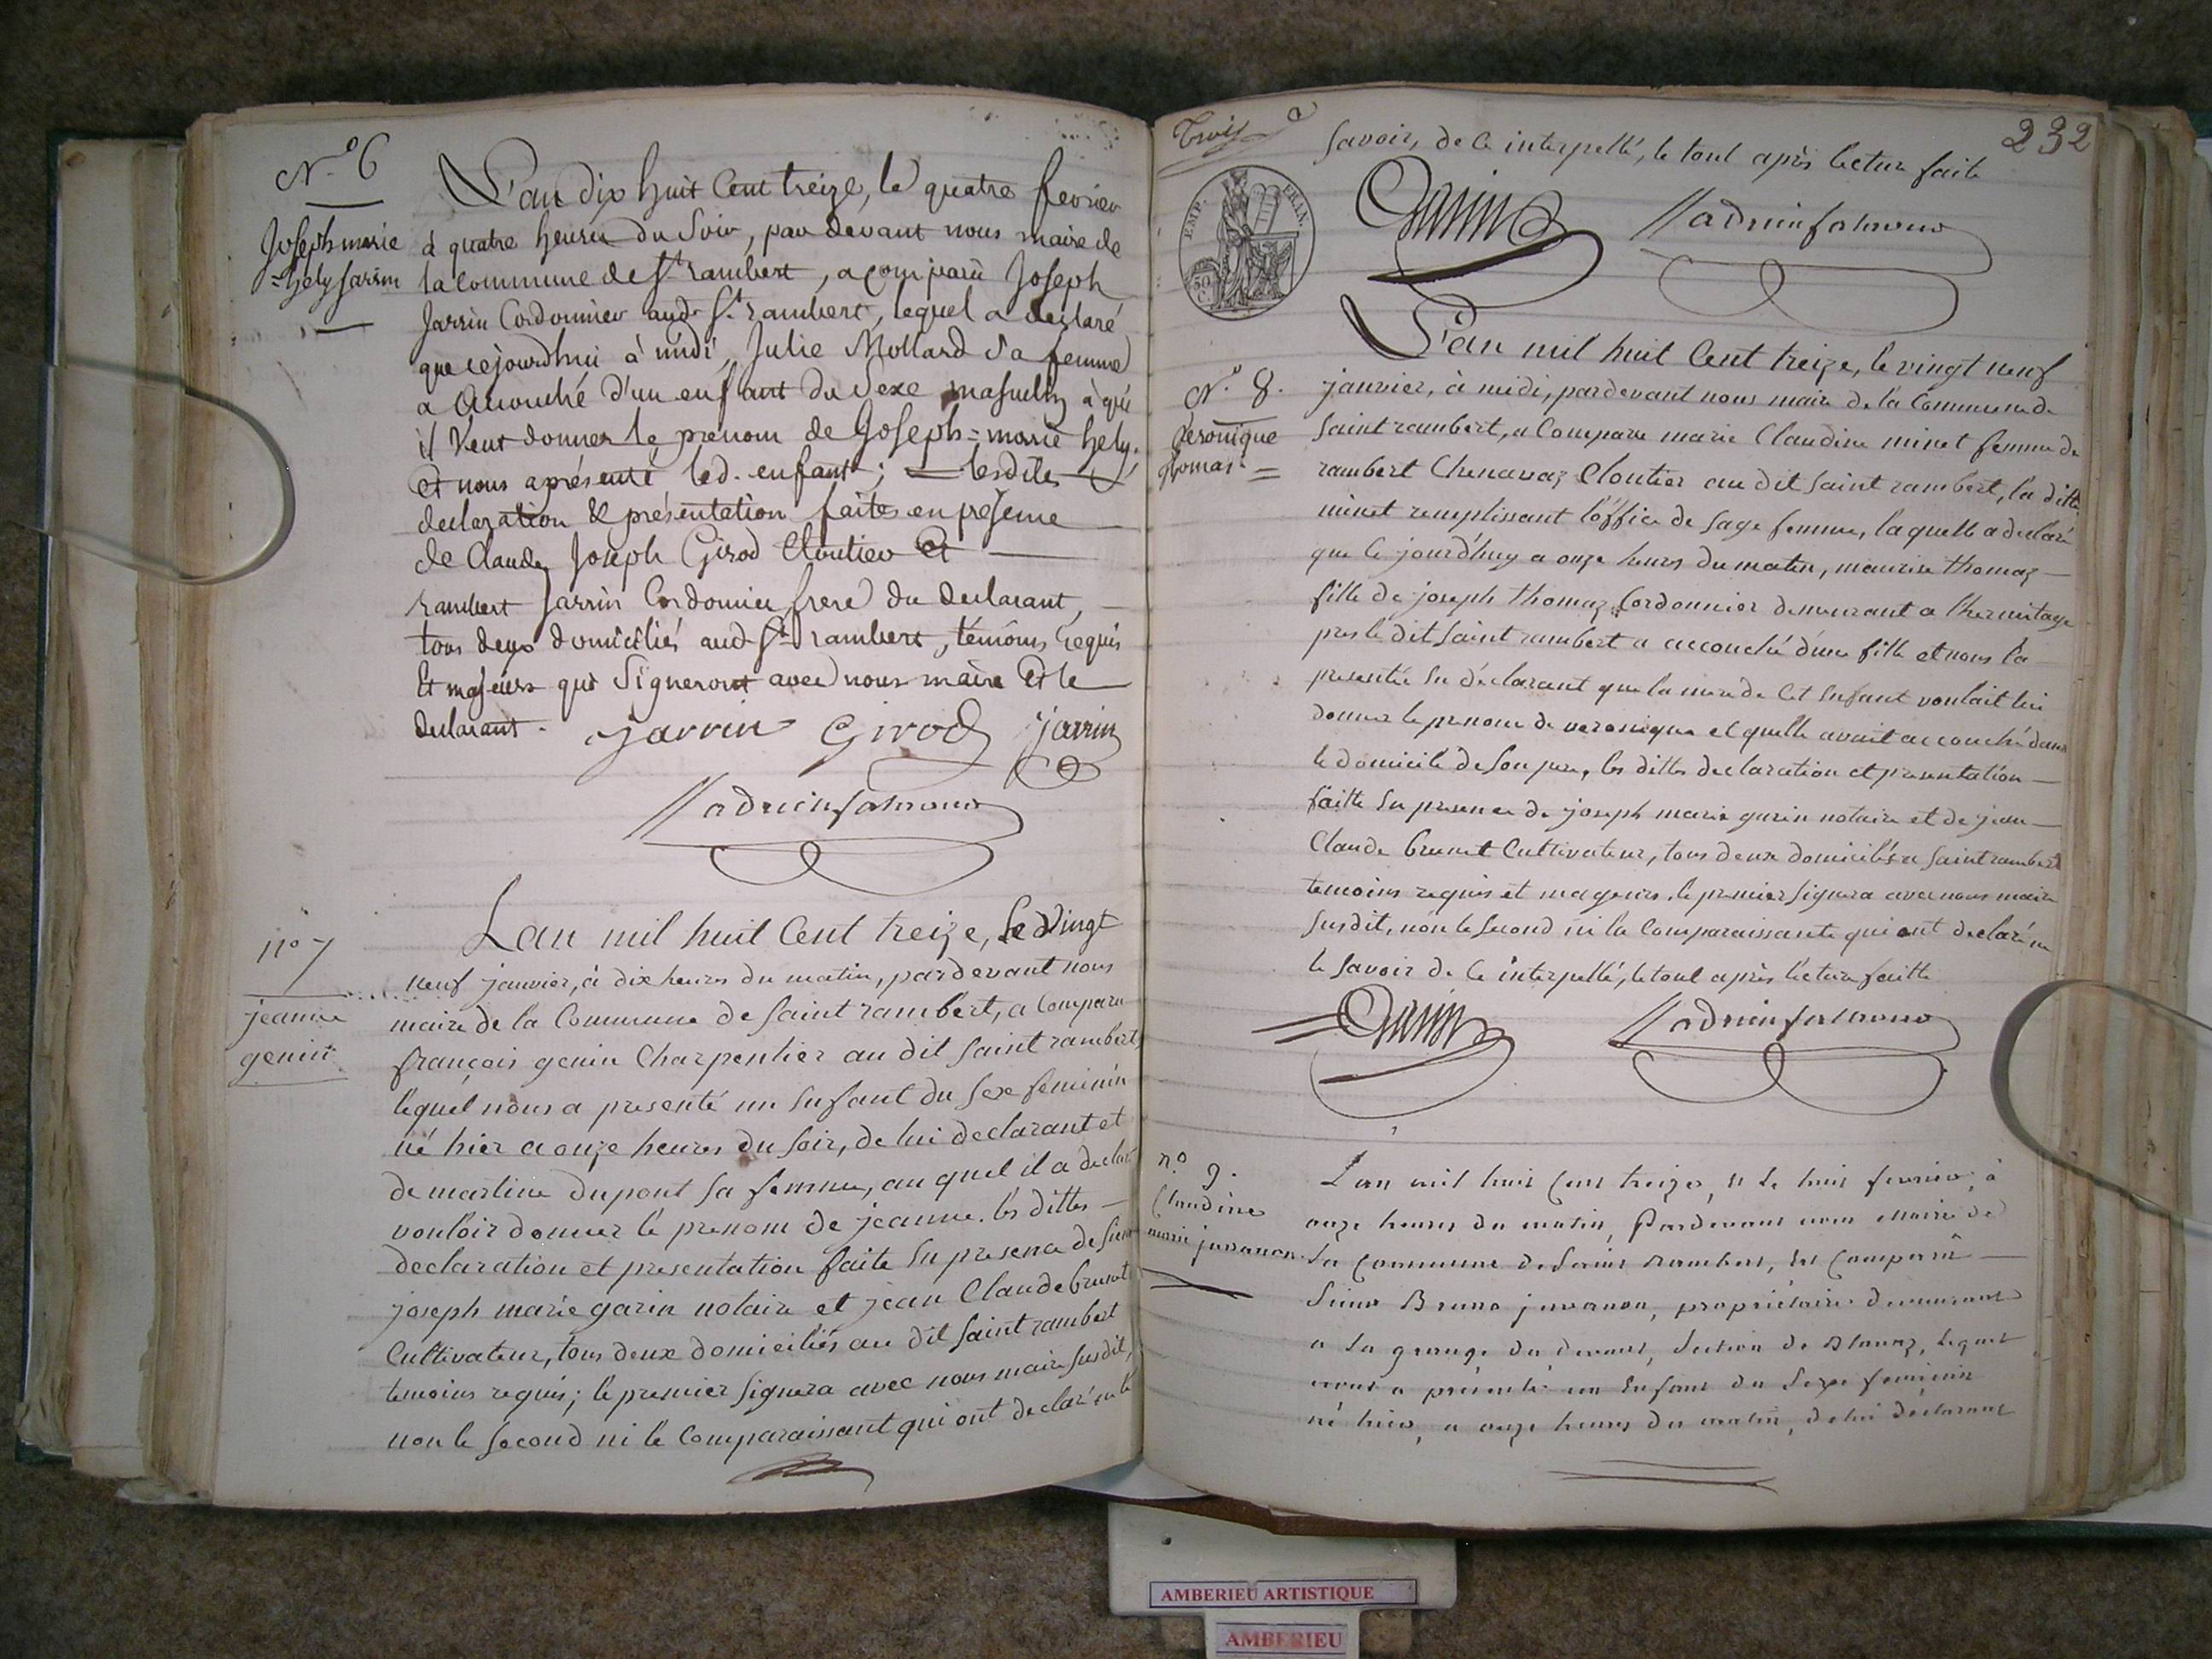 N.o 6
Joseph marie
=hely Jarrin
L'an dix huit Cent treize, le quatre fevrier
à quatre heures du Soir, par devant nous maire de
la Commune de St. rambert, a comparû Joseph
Jarrin Cordonnier aud. St. rambert, lequel a declaré
que cejourdhui à midi, Julie Mollard Sa femme
a accouché d'un enfant du Sexe masculin à qui
il Veut donner le prénom de Joseph=marie hely.
Et nous a présenté led. enfant; lesdites
declaration & présentation faites en présence
de Claude Joseph Girod Cloutier Et
rambert Jarrin Cordonnier frere du declarant,
tous deux domiciliés aud. St. rambert, témoins requis
Et majeurs qui Signeront avec nous maire Et le
declarant. Jarrin Girod Jarrin
no 7
jeanne
genin
Lan mil huit Cent treize, le Vingt
neuf janvier, à dix heures du matin, pardevant nous
maire de la Commune de Saint rambert, a Comparu
françois genin Charpentier au dit Saint rambert,
lequel nous a presenté un Enfant du Sexe feminin
né hier a onze heures du soir, de lui declarant et
de martine dupont sa femme, au quel il a declaré
vouloir donner le prenom de jeanne. les dittes
declaration et presentation faite En presence de Sieur
joseph marie garin notaire et jean Claude brunet
Cultivateur, tous deux domiciliés au dit Saint rambert
temoins requis; le premier Signera avec nous maire susdit,
non le Second ni le Comparaissant qui ont declaré ne le
Trois
232
Savoir, de Ce interpellé, le tout après lecture faite
EMP. FRAN.
50
C.
Garin
N.o 8.
Veronique
thomas =
L'an mil huit Cent treize, le vingt neuf
janvier, à midi, pardevant nous maire de la Commune de
Saint rambert, a Comparu marie Claudine minet femme de
rambert Chenavaz Cloutier au dit Saint rambert, la ditte
minet remplissant l'office de Sage femme, laquelle a declaré
que Ce jourd'huy a onze heures du matin, maurise thomaz
fille de joseph thomaz Cordonnier demeurant a l'hermitage
pres le dit Saint rambert a accouché d'une fille et nous l'a
presentée En déclarant que la mere de Cet Enfant voulait lui
donner le prenom de veronique et quelle avait accouché dans
le domicile de Son pere, les dittes declaration et presentation
faitte En presence de joseph marie garin notaire et de jean
Claude brunet Cultivateur, tous deux domiciliés a Saint rambert
temoins requis et mageurs. le premier Signera avec nous maire
Susdit, non le Second ni la Comparaissante qui ont declaré ne
le Savoir de Ce interpellé, le tout après lecture faitte
Garin
n.o 9.
Claudine
marie juvanon
L'an mil huit Cent treize, & le huit fevrier, à
onze heures du matin, Pardevant nous Maire de
La Commune de Saint Rambert, Est Comparû
Sieur Bruno juvanon, propriétaire demeurant
a La grange du devant, Section de Blanaz, Lequel
nous a présenté un Enfant du Sexe feminin
né hier, a onze heures du matin, de lui declarant
AMBERIEU ARTISTIQUE
AMBERIEU